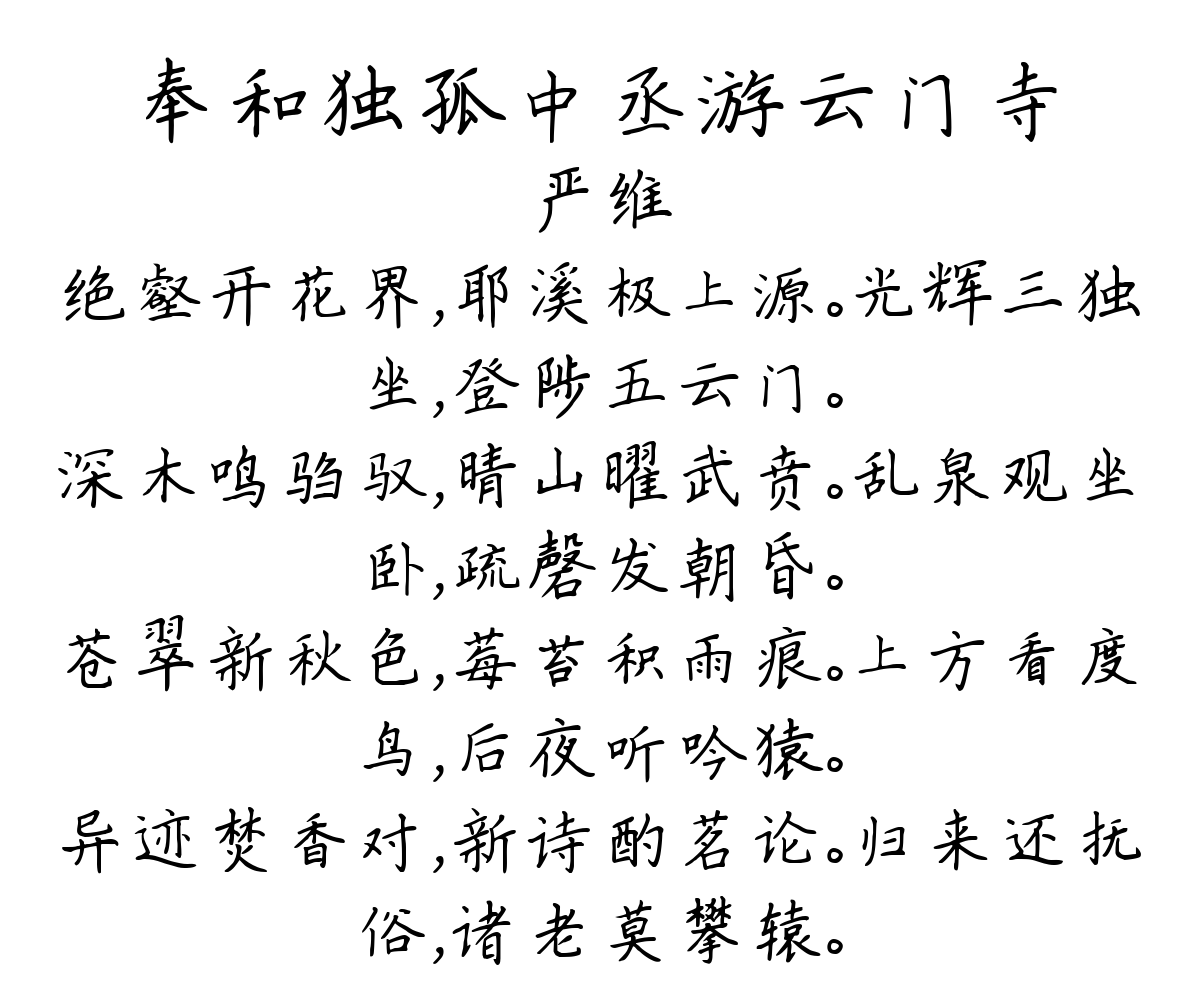 奉和独孤中丞游云门寺
严维
绝壑开花界,耶溪极上源。光辉三独
坐,登陟五云门。
深木鸣驺驭,晴山曜武贲。乱泉观坐
卧,疏磬发朝昏。
苍翠新秋色,莓苔积雨痕。上方看度
鸟,后夜听吟猿。
异迹焚香对,新诗酌茗论。归来还抚
俗,诸老莫攀辕。